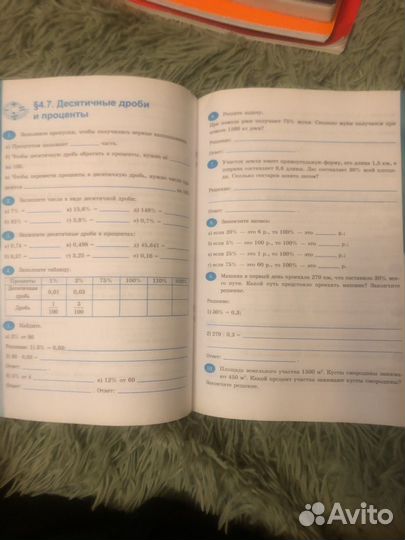 §4.7. Десятичные дроби
и проценты
1 Заполните пропуски, чтобы получились верные высказывания.
а) Процентом называют часть.
б) Чтобы десятичную дробь обратить в проценты, нужно её
на 100.
в) Чтобы перевести проценты в десятичную дробь, нужно число
на 100.
2 Запишите числа в виде десятичной дроби:
а) 7% =
3 Запишите десятичные дроби в процентах:
а) 0,74 = в) 0,498 = д) 45,641 =
б) 0,37 = г) 3,25 = е) 0,16 =
4 Заполните таблицу.
Проценты 1% 3% 75% 100% 110%
Десятичная дробь 0,01 0,03
Дробь 1/100 3/100
5 Найдите.
Решение: 1) 3% = 0,03;
Ответ:
в) 12% от 60
Ответ:
6 Решите задачу.
При помоле ржи получают 75% муки. Сколько муки получится при
помоле 1500 кг ржи?
Решение:
Ответ:
7 Участок земли имеет прямоугольную форму, его длина 1,5 км, а
ширина составляет 0,6 длины. Лес составляет 30% всей площа-
ди. Сколько гектаров занято лесом?
Решение:
Ответ:
8 Закончите запись:
а) если 20% — это 6 р., то 100% — это р.;
б) если 5% — это 100 р., то 100% — это р.;
в) если 25% — это 1 р., то 100% — это р.;
г) если 75% — это 60 р., то 100% — это р.
9 Машина в первый день проехала 270 км, что составило 30% все-
го пути. Какой путь предстояло проехать машине? Закончите
решение.
Решение:
1) 30% = 0,3;
2) 270 : 0,3 =
Ответ:
10 Площадь земельного участка 1500 м². Кусты смородины занима-
ют 450 м². Какой процент участка занимают кусты смородины?
Закончите решение.
Avito